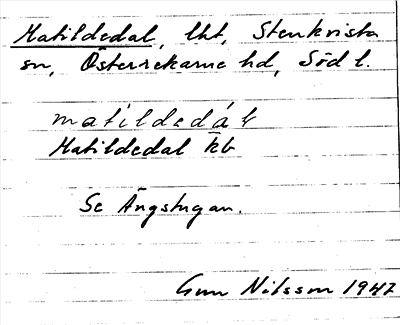 Matildedal, lht, Stenkvista
sn, Österrekarne hd, Södl.
matildedál
Matildedal kb
Se Ängstugan.
Gun Nilsson 1947